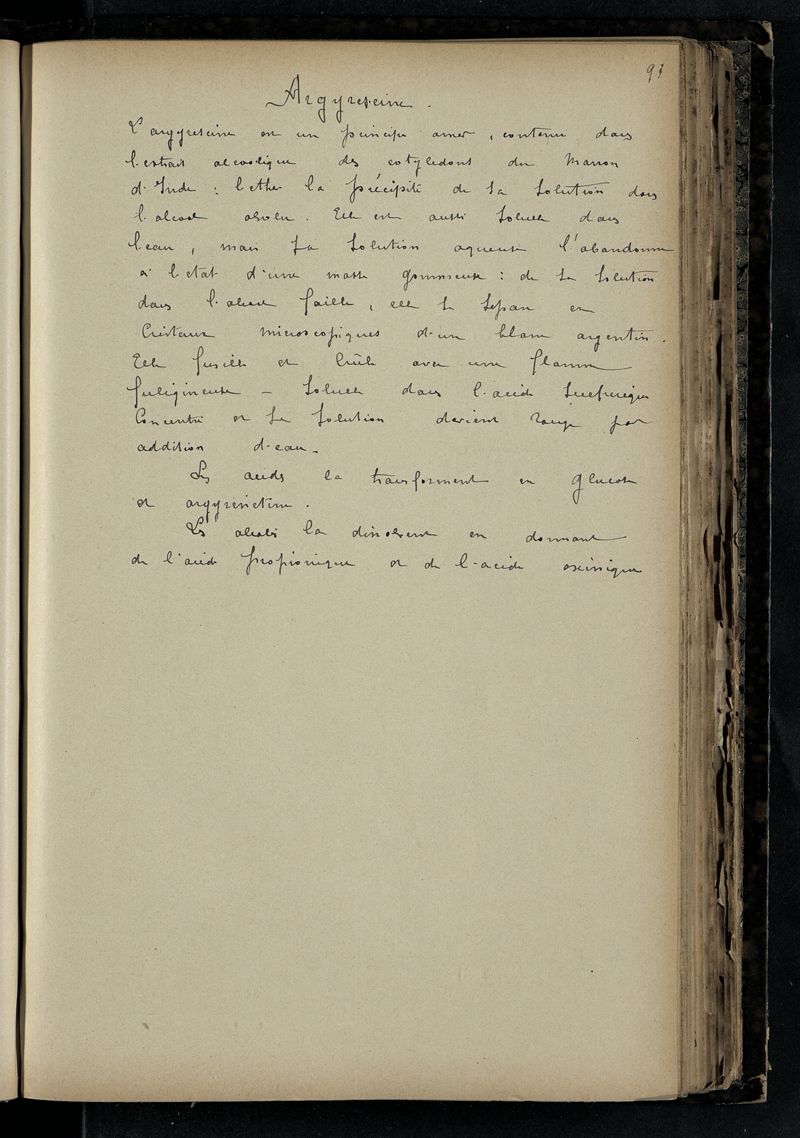 93
Argyrescine.
L'argyrescine est un principe amer, contenu dans
l'extrait alcoolique des cotylédons du Marron
d'Inde : l'éther la précipite de sa solution dans
l'alcool absolu. Elle est aussi soluble dans
l'eau, mais sa solution aqueuse l'abandonne
à l'état d'une masse gommeuse : de sa solution
dans l'alcool faible, elle se sépare en
Cristaux microscopiques d'un blanc argentin.
Elle fusible et brûle avec une flamme
fuligineuse – Soluble dans l'acide sulfurique
Concentré et la solution devient rouge par
addition d'eau.
Les acides la transforment en glucose
et argyrenetine.
Les alcalis la dissolvent en donnant
de l'acide propionique et de l'acide escinique